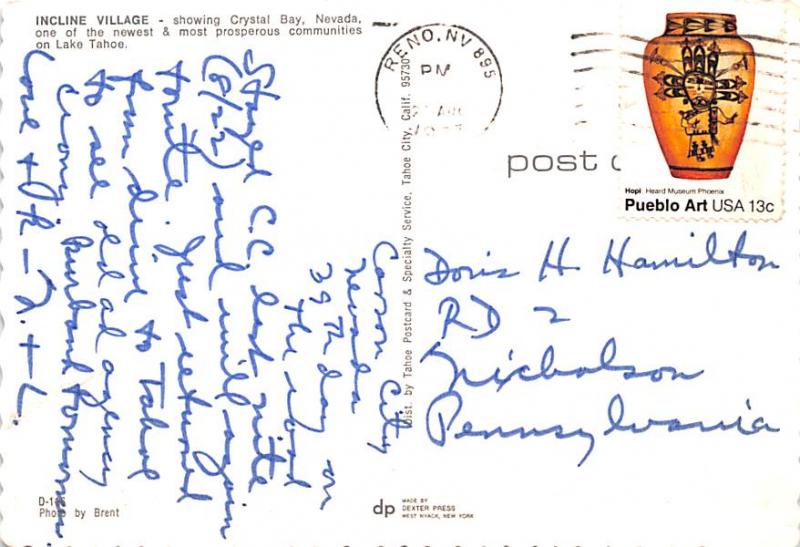 INCLINE VILLAGE - showing Crystal Bay, Nevada,
one of the newest & most prosperous communities
on Lake Tahoe.
RENO, NV 895
PM
AUG
Hopi Heard Museum Phoenix
Pueblo Art USA 13c
post c
Dist. by Tahoe Postcard & Specialty Service, Tahoe City, Calif. 95730
Carson City
Nevada
39th day on
the road
Stayed C.C. last nite
(8/22) and will again
tonite. Just returned
from drive to Tahoe
to see old ad agency
crony.
Burbank tomorrow
Love + OK - J. + L.
Doris H. Hamilton
RD 2
Nicholson
Pennsylvania
D-1
Photo by Brent
dp
MADE BY
DEXTER PRESS
WEST NYACK, NEW YORK